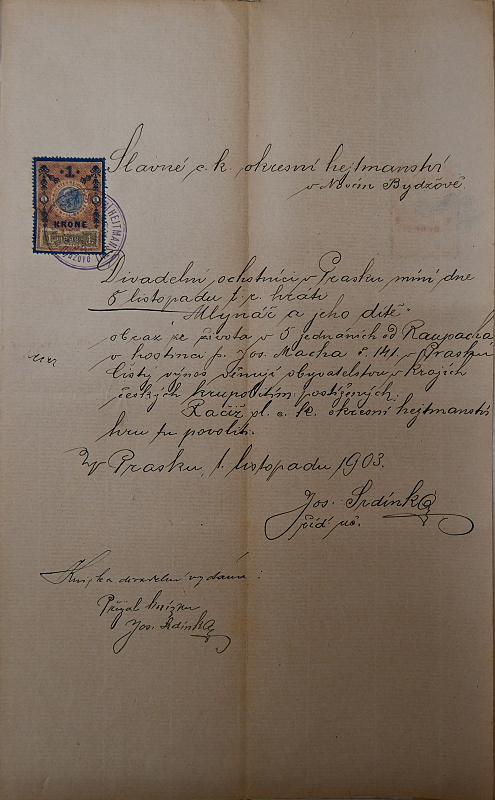 1
KRONE
HEJTMAN
Slavné c. k. okresní hejtmanství
v Novém Bydžově.
Divadelní ochotníci v Prasku míní dne
5 listopadu t. r. hráti
Mlynář a jeho dítě
obraz ze života v 5 jednáních od Raupacha
v hostinci p. Jos. Macha č. 141. v Prasku
Čistý výnos věnují obyvatelstvu v krajích
českých krupobitím postiženým.
Račiž sl. c. k. okresní hejtmanství
hru tu povoliti.
V Prasku, 1. listopadu 1903.
Jos. Srdínko
říd. uč.
Knížka divadelní vydána:
Přijal knížku
Jos. Srdínko